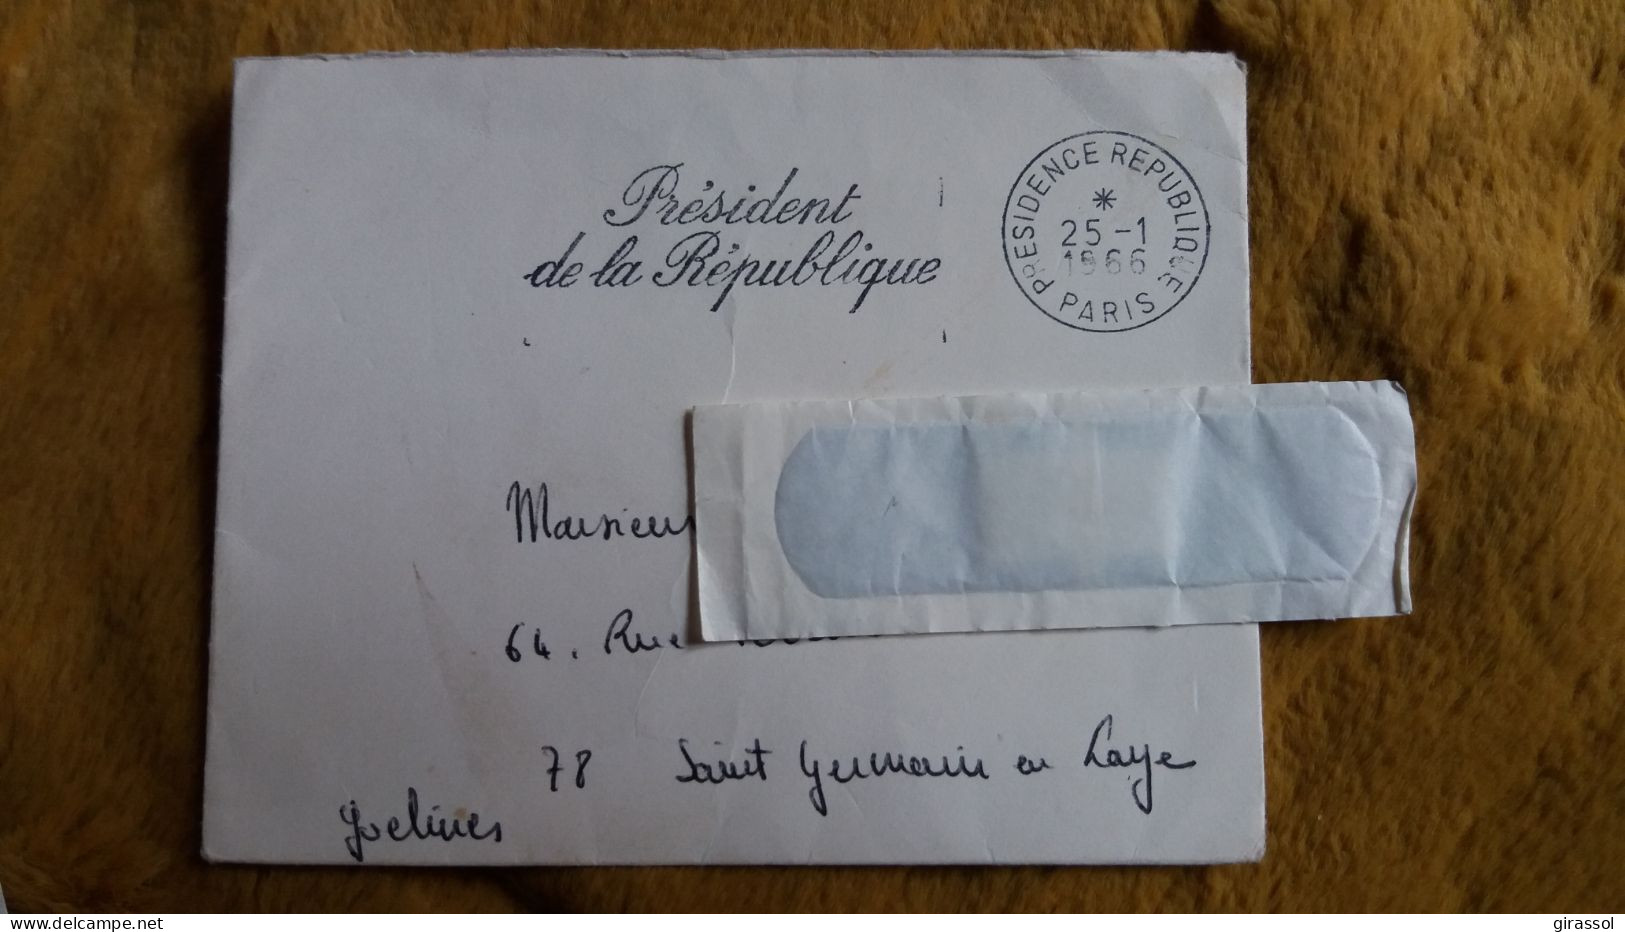 Président
de la République
PRESIDENCE REPUBLIQUE
*
25 -1
1966
PARIS
Monsieur
64. Rue
78 Saint Germain en Laye
Yvelines
www.delcampe.net
girassol